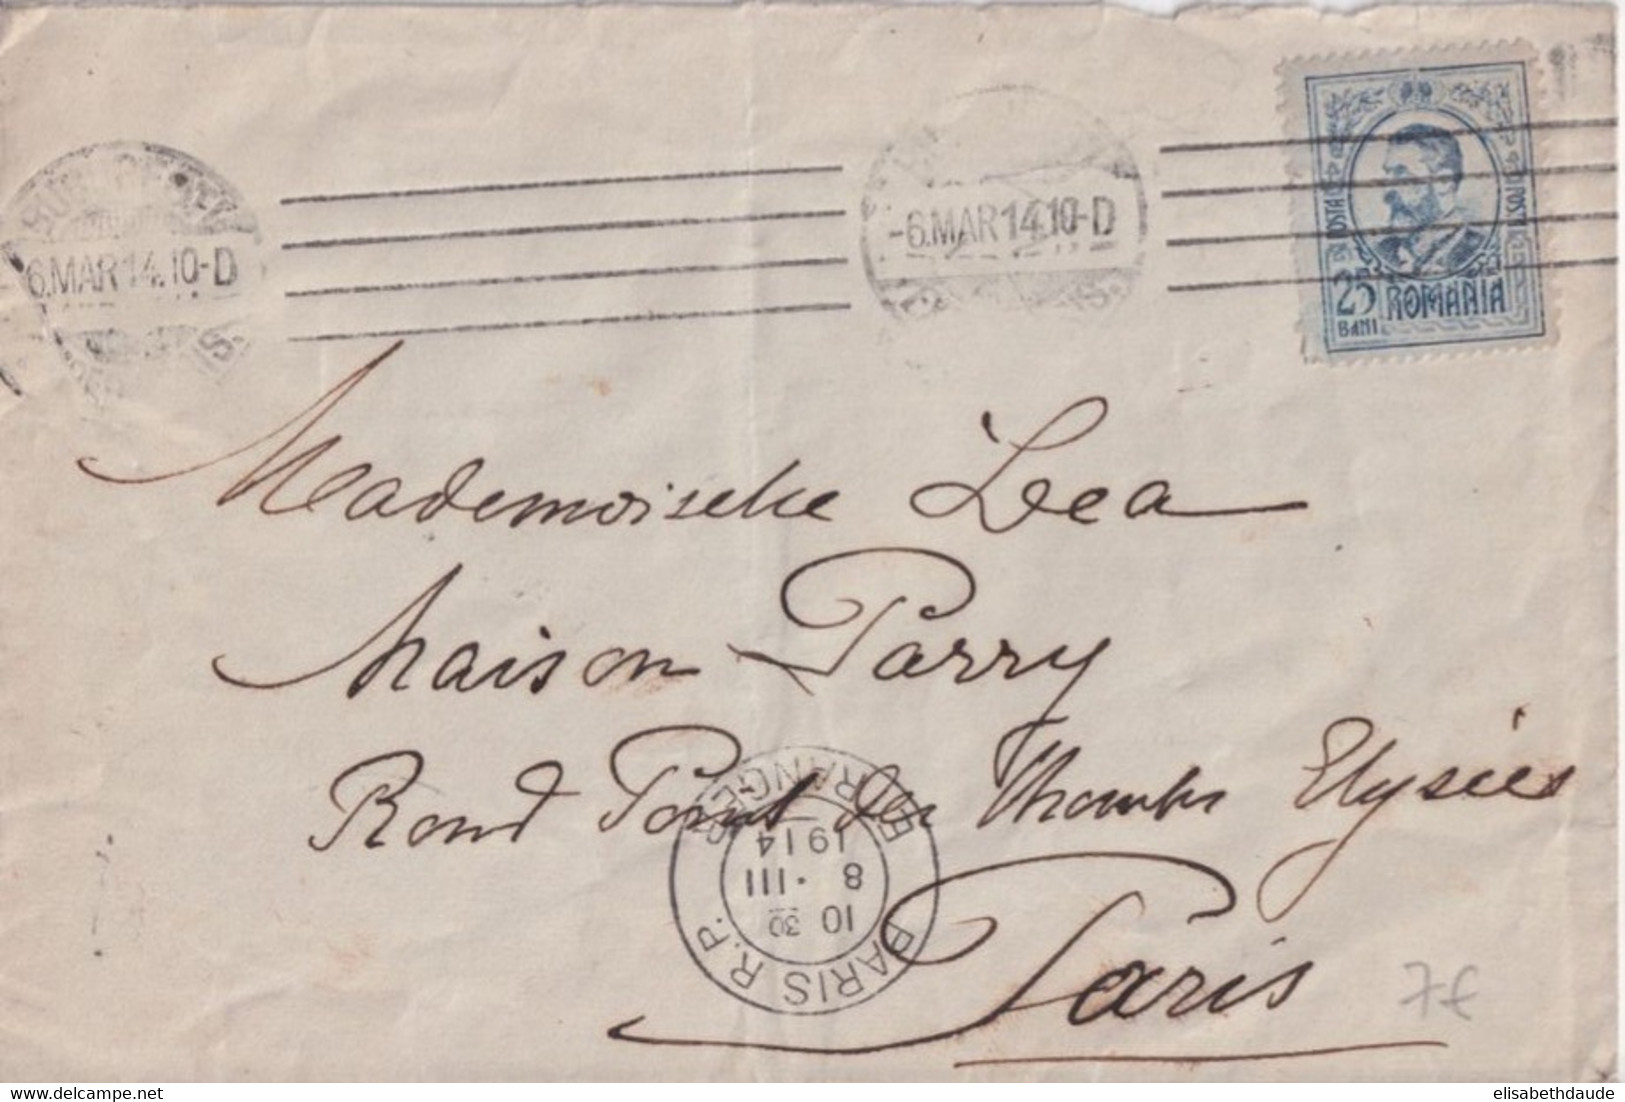 BUCURESTI
6.MAR 14.10-D
-6.MAR 14.10-D
POSTA
25 ROMANIA
BANI
Mademoiselle Lea
Maison Parry
Rond Point des Champs Elysées
Paris
PARIS R.P.
ETRANGER
10 30
8 · III
1914
7€
www.delcampe.net
elisabethdaude